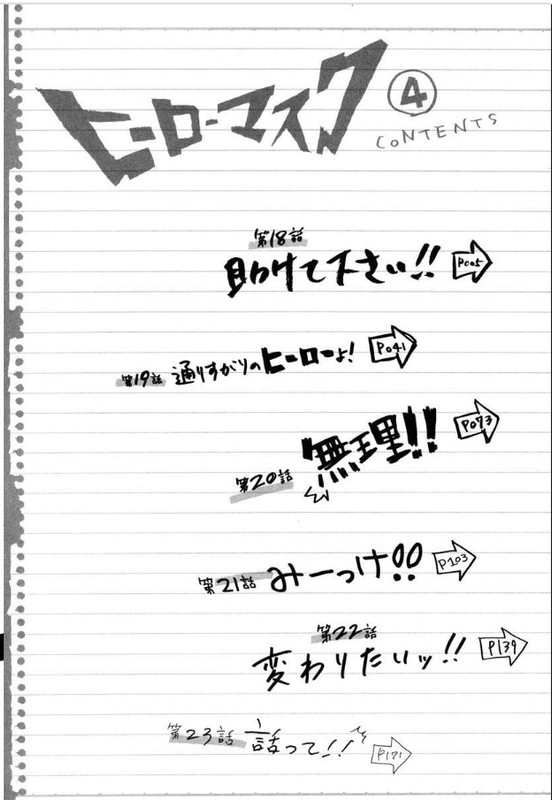 ヒーローマスク ④
CONTENTS
第18話
助けて下さい!! P005
第19話 通りすがりのヒーローよ! P041
第20話 無理!! P073
第21話 みーっけ!! P103
第22話
変わりたいッ!! P139
第23話 話って!! P171